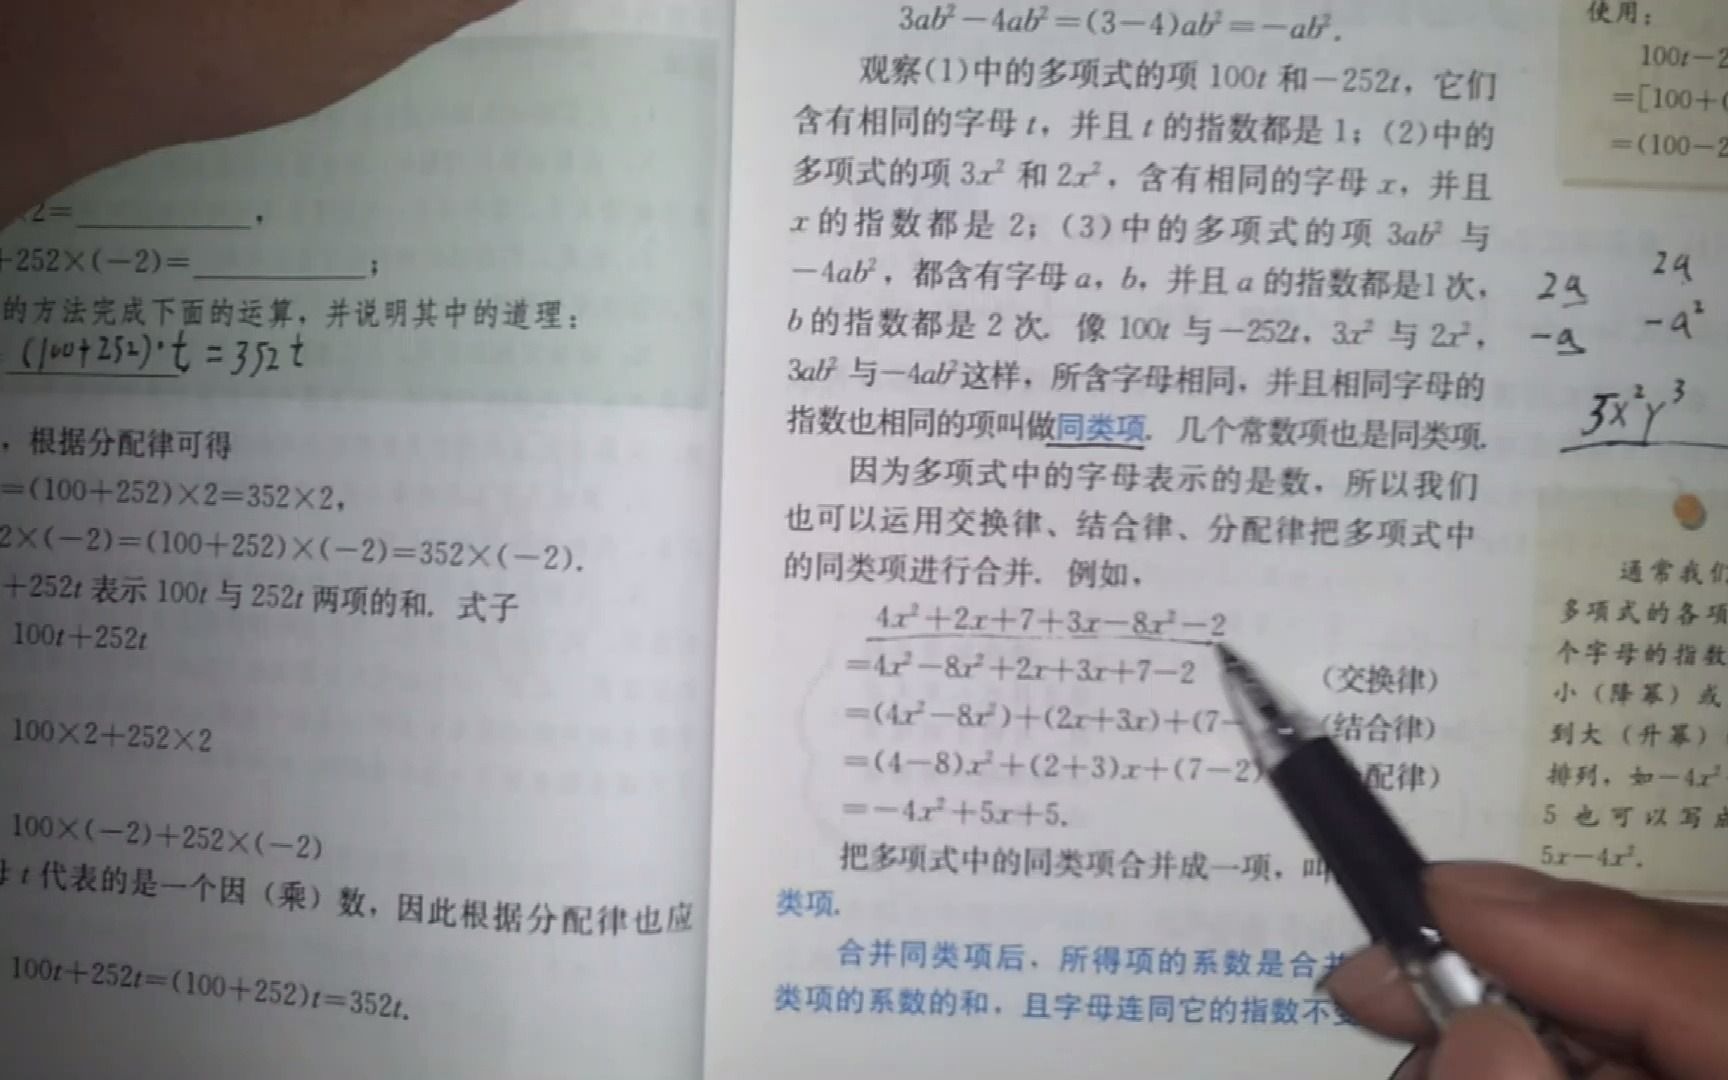 ×2=________,
+252×(-2)=________;
的方法完成下面的运算，并说明其中的道理：
(100+252)·t=352t
，根据分配律可得
=(100+252)×2=352×2,
2×(-2)=(100+252)×(-2)=352×(-2).
+252t 表示 100t 与 252t 两项的和. 式子
100t+252t
100×2+252×2
100×(-2)+252×(-2)
t 代表的是一个因（乘）数，因此根据分配律也应
100t+252t=(100+252)t=352t.
3ab²-4ab²=(3-4)ab²=-ab².
观察(1)中的多项式的项 100t 和-252t，它们
含有相同的字母 t，并且 t 的指数都是 1；(2)中的
多项式的项 3x² 和 2x²，含有相同的字母 x，并且
x 的指数都是 2；(3)中的多项式的项 3ab² 与
-4ab²，都含有字母 a，b，并且 a 的指数都是1 次，
b 的指数都是 2 次. 像 100t 与-252t，3x² 与 2x²，
3ab² 与-4ab²这样，所含字母相同，并且相同字母的
指数也相同的项叫做同类项. 几个常数项也是同类项.
因为多项式中的字母表示的是数，所以我们
也可以运用交换律、结合律、分配律把多项式中
的同类项进行合并. 例如，
4x²+2x+7+3x-8x²-2
=4x²-8x²+2x+3x+7-2 （交换律）
=(4x²-8x²)+(2x+3x)+(7- （结合律）
=(4-8)x²+(2+3)x+(7-2) 配律）
=-4x²+5x+5.
把多项式中的同类项合并成一项，叫
类项.
合并同类项后，所得项的系数是合并
类项的系数的和，且字母连同它的指数不变
使用：
100t-2
=[100+(
=(100-2
2a 2a
-a -a²
3x²y³
通常我们
多项式的各项
个字母的指数
小（降幂）或
到大（升幂）
排列，如-4x²
5 也可以写成
5x-4x².